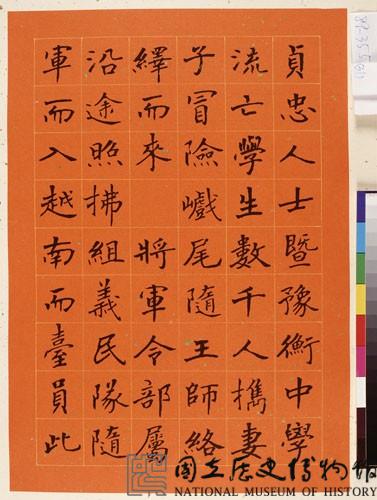 貞忠人士暨豫衡中學
流亡學生數千人攜妻
子冒險巇尾隨王師絡
繹而來 將軍令部屬
沿途照拂組義民隊隨
軍而入越南而臺員此
國立歷史博物館
NATIONAL MUSEUM OF HISTORY